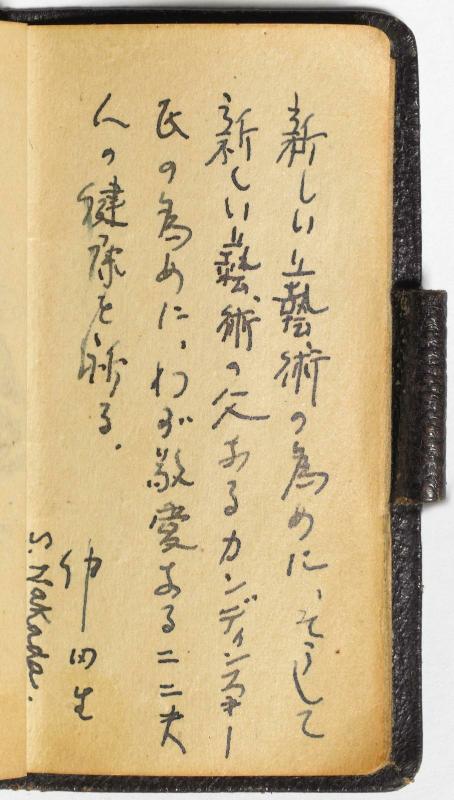 新しい藝術の為めに、そうして
新しい藝術の父なるカンディンスキー
氏の為めに、わが敬愛なるニーナ夫
人の健康を祈る。
仲田生
S. Nakada.